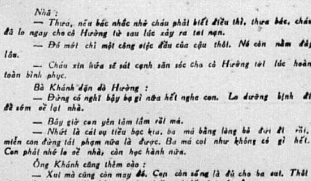 Nhã :
— Thưa, nếu bác nhắc nhở cháu phải biết điều thì, thưa bác, cháu
đã lo ngay cho cô Hường từ sau lúc xảy ra tai nạn.
— Đó mới chỉ một công việc đầu của cậu thôi. Nó còn nằm đây
lâu.
— Cháu xin hứa sẽ sát cạnh săn sóc cho cô Hường tới lúc hoàn
toàn bình phục.
Bà Khánh dặn dò Hường :
— Đừng có nghĩ bậy bạ gì nữa hết nghe con. Lo dưỡng bịnh để
để sớm về lại nhà.
— Bây giờ con yên tâm lắm rồi má.
— Nhứt là cái vụ tiền bạc kia. ba má bằng lòng bỏ đứt đi rồi,
miễn con đừng tái phạm nữa là được. Ba má coi như không có gì hết.
Con phải nhớ lo về nhà, còn học hành nữa.
Ông Khánh cũng thêm vào :
— Xui mà cũng còn may đó. Con còn sống là đủ cho ba vui. Thôi